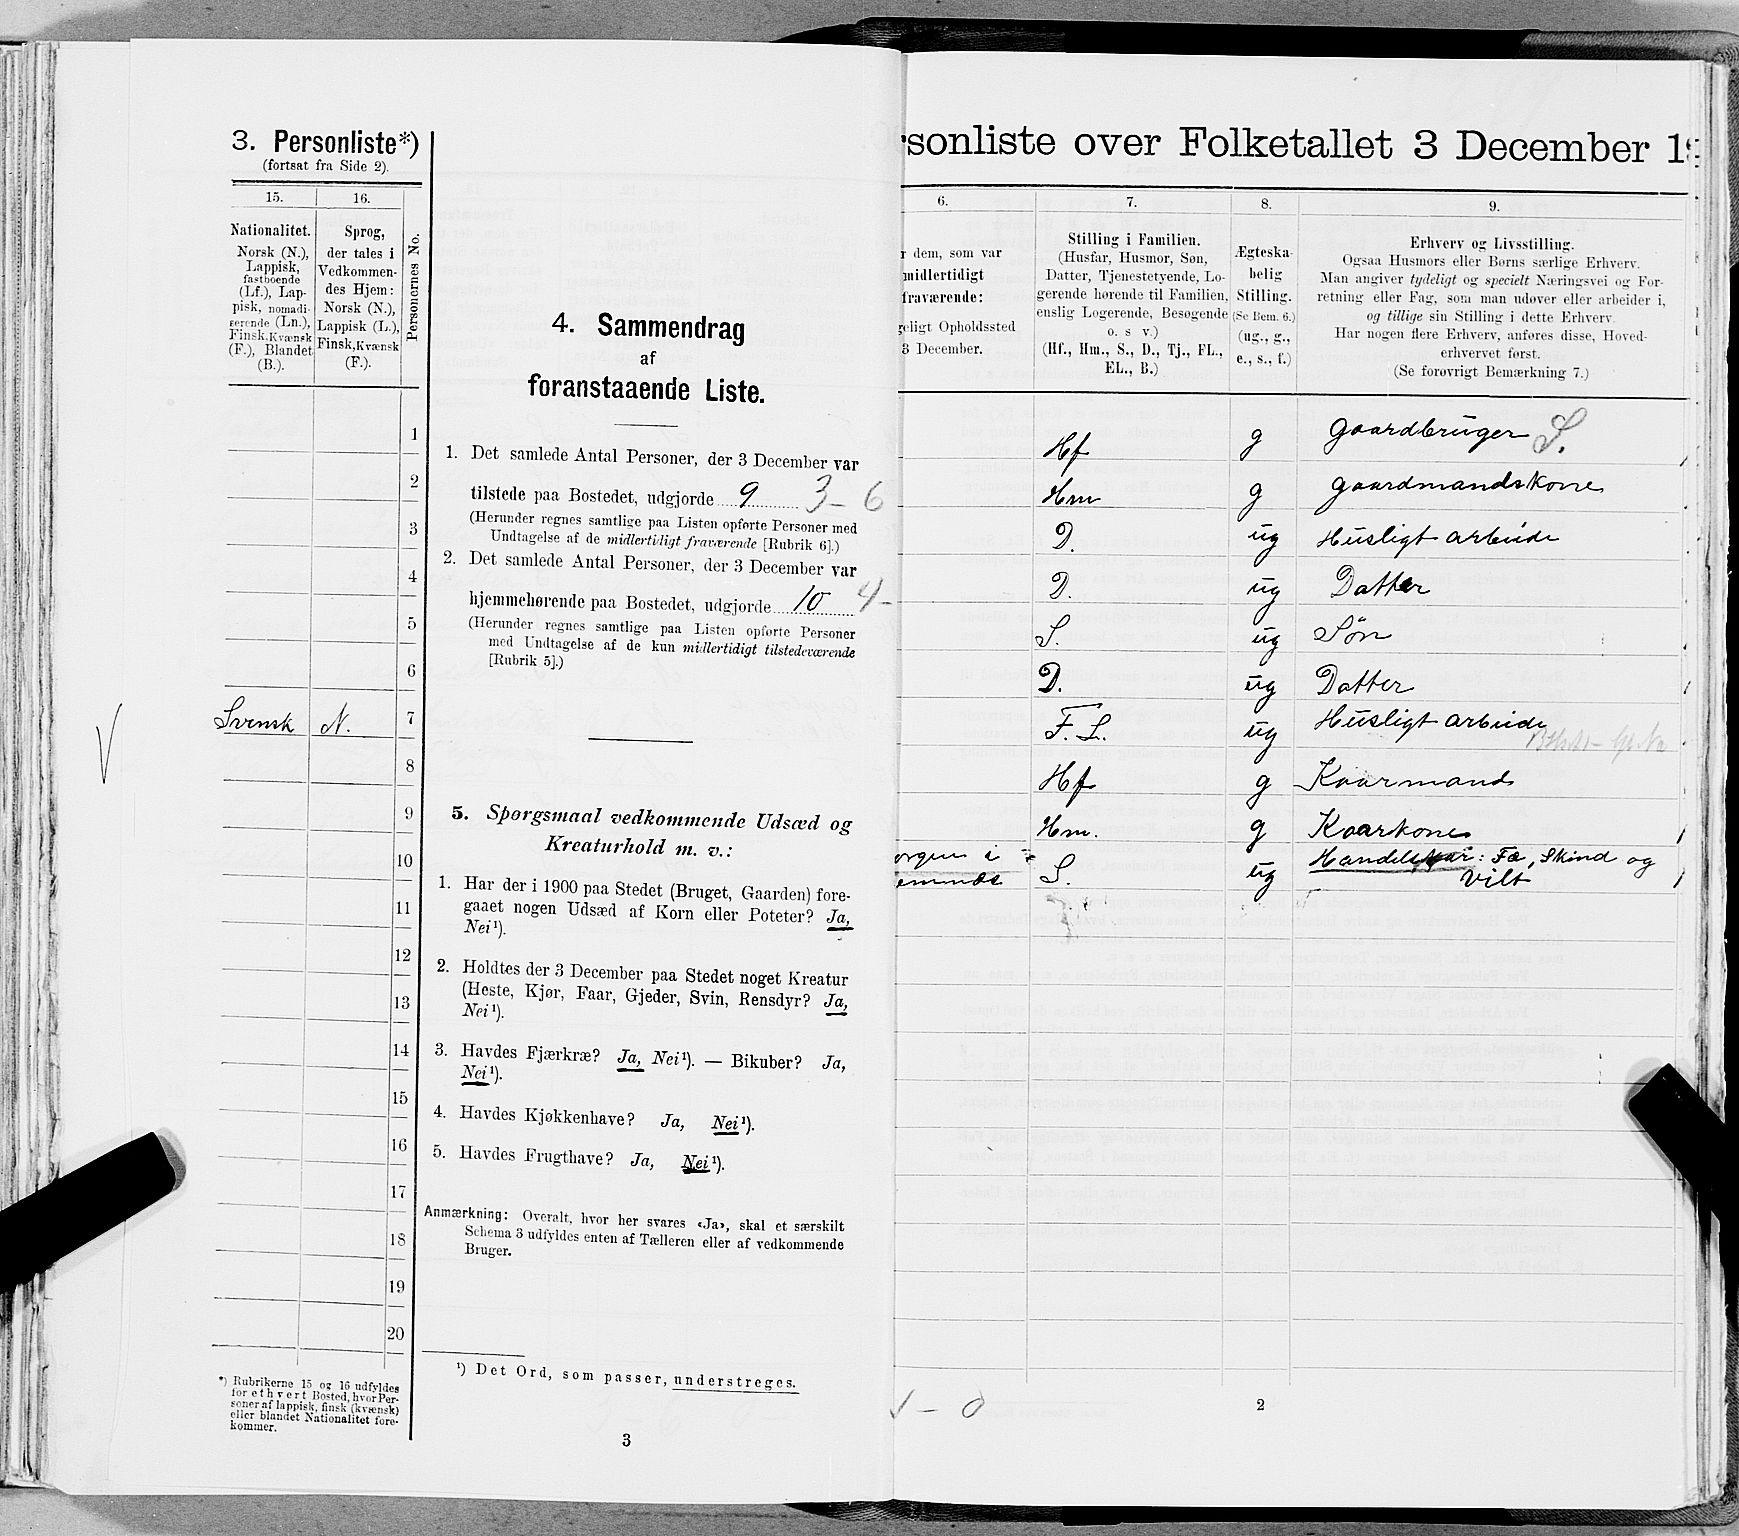 3. Personliste*)
(fortsat fra Side 2).
15.
16.
Nationalitet.
Norsk (N.),
Lappisk,
fastboende
(Lf.), Lap-
pisk, nomadi-
serende (Ln.),
Finsk, Kvænsk
(F.), Blandet
(B.).
Sprog,
der tales i
Vedkommen-
des Hjem:
Norsk (N.),
Lappisk (L.),
Finsk, Kvænsk
(F.).
Personernes No.
1
2
3
4
5
6
Svensk N. 7
8
9
10
11
12
13
14
15
16
17
18
19
20
*) Rubrikerne 15 og 16 udfyldes
for ethvert Bosted, hvor Per-
soner af lappisk, finsk (kvænsk)
eller blandet Nationalitet fore-
kommer.
4. Sammendrag
af
foranstaaende Liste.
1. Det samlede Antal Personer, der 3 December var
tilstede paa Bostedet, udgjorde 9 3-6
(Herunder regnes samtlige paa Listen opførte Personer med
Undtagelse af de midlertidigt fraværende [Rubrik 6].)
2. Det samlede Antal Personer, der 3 December var
hjemmehørende paa Bostedet, udgjorde 10 4-
(Herunder regnes samtlige paa Listen opførte Personer
med Undtagelse af de kun midlertidigt tilstedeværende
[Rubrik 5].)
5. Spørgsmaal vedkommende Udsæd og
Kreaturhold m. v.:
1. Har der i 1900 paa Stedet (Bruget, Gaarden) fore-
gaaet nogen Udsæd af Korn eller Poteter? Ja,
Nei¹).
2. Holdtes der 3 December paa Stedet noget Kreatur
(Heste, Kjør, Faar, Gjeder, Svin, Rensdyr? Ja,
Nei¹).
3. Havdes Fjærkræ? Ja, Nei¹). — Bikuber? Ja,
Nei¹).
4. Havdes Kjøkkenhave? Ja, Nei¹).
5. Havdes Frugthave? Ja, Nei¹).
Anmærkning: Overalt, hvor her svares «Ja», skal et særskilt
Schema 3 udfyldes enten af Tælleren eller af vedkommende
Bruger.
¹) Det Ord, som passer, understreges.
3
rsonliste over Folketallet 3 December 19
6.
r dem, som var
midlertidigt
fraværende:
geligt Opholdssted
3 December.
7.
Stilling i Familien.
(Husfar, Husmor, Søn,
Datter, Tjenestetyende, Lo-
gerende hørende til Familien,
enslig Logerende, Besøgende
o. s v.)
(Hf., Hm., S., D., Tj., FL.,
EL., B.)
8.
Ægteska-
belig
Stilling.
(Se Bem. 6.)
(ug., g.,
e., s., f.)
9.
Erhverv og Livsstilling.
Ogsaa Husmors eller Børns særlige Erhverv.
Man angiver tydeligt og specielt Næringsvei og For-
retning eller Fag, som man udøver eller arbeider i,
og tillige sin Stilling i dette Erhverv.
Har nogen flere Erhverv, anføres disse, Hoved-
erhvervet først.
(Se forøvrigt Bemærkning 7.)
Hf g gaardbruger S.
Hm g gaardmandskone
D. ug Husligt arbeide
D. ug Datter
S. ug Søn
D. ug Datter
F. L. ug Husligt arbeide
Hf g Kaarmand
Hm. g Kaarkone
orgen i S. ug Handelskar: Fæ, Skind og
Vilt
0
2